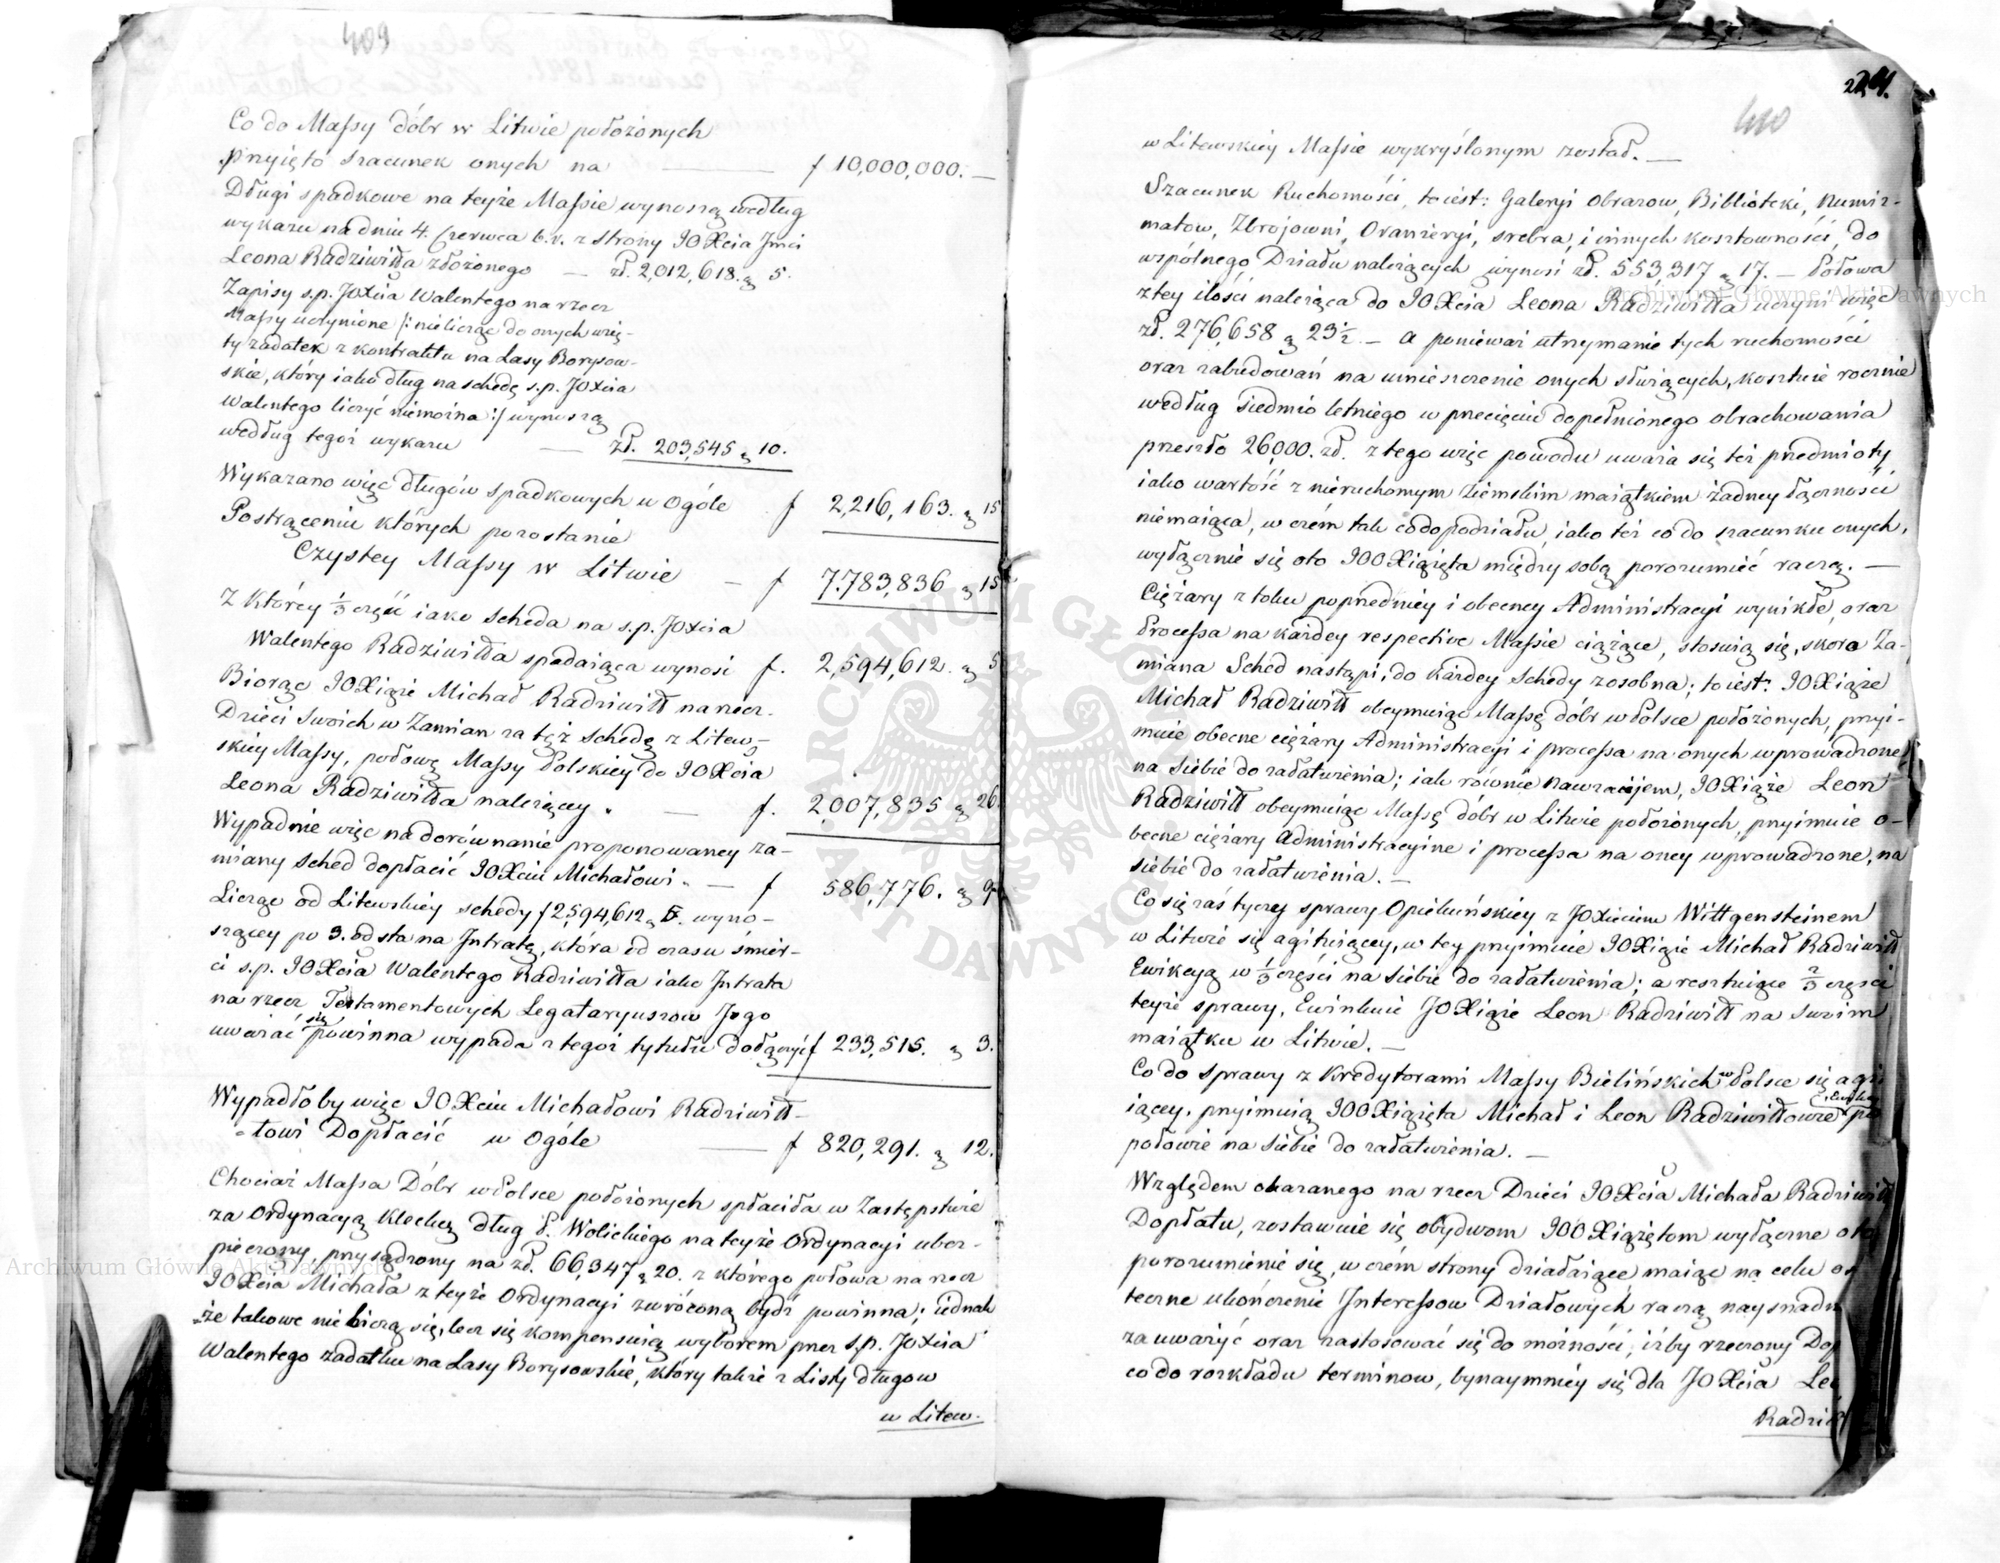 409
Co do Massy dóbr w Litwie położonych
przyięto szacunek onych na — f 10,000,000. —
Długi spadkowe na teyże Massie wynoszą według
wykazu na dniu 4. Czerwca b. r. z strony JOXcia Jmci
Leona Radziwiłła złożonego — zł. 2,012,618. g 5.
Zapisy s.p. JOXcia Walentego na rzecz
Massy uczynione /: nielicząc do onych wzię-
ty zadatek z kontraktu na Lasy Borysow-
skie, który iako dług na schedę s.p. JOXcia
Walentego liczyć niemożna :/ wynoszą
według tegoż wykazu — zł. 203,545 g 10.
Wykazano więc długów spadkowych w Ogóle f 2,216,163. g 15
Postrąceniu których pozostanie
Czystey Massy w Litwie — f 7.783,836 g 15
Z którey 1/3 część iako scheda na s.p. JOXcia
Walentego Radziwiłła spadaiąca wynosi f. 2,594,612. g 5
Biorąc JOXiąże Michał Radziwiłł na rzecz
Dzieci Swoich w Zamian za tęż Schedę z Litew-
skiey Massy, połowę Massy Polskiey do JOXcia
Leona Radziwiłła należącey. — f. 2,007,835 g 26.
Wypadnie więc na dorównanie proponowaney za-
miany sched dopłacić JOXciu Michałowi. — f 586,776. g 9
Licząc od Litewskiey schedy f 2,594,612 g 5. wyno-
szącey po 3. od sta na Intratę, która od czasu śmier-
ci s.p. JOXcia Walentego Radziwiłła iako Intrata
na rzecz Testamentowych Legataryuszow Jego
uważać się powinna wypada z tegoż tytułu dołączyć f 233,515. g 3.
Wypadłoby więc JOXciu Michałowi Radziwił-
łowi Dopłacić w Ogóle — f 820,291. g 12.
Chociaż Massa Dóbr w Polsce położonych spłaciła w Zastępstwie
za Ordynacyą Klecką dług P. Wolickiego na teyże Ordynacyi ubez-
pieczony, przysądzony na zł. 66,347 g 20. z którego połowa na rzecz
JOXcia Michała z teyże Ordynacyi zwróconą bydź powinna; iednak
że takowe nie biorą się, lecz się kompensuią wyborem przez s.p. JOXcia
Walentego zadatku na Lasy Borysowskie, który także z Listy długow
w Litew.
410
w Litewskiey Massie wykryślonym został. —
Szacunek Ruchomości, to iest: Galeryi Obrazow, Biblioteki, Numiz-
matow, Zbrojowni, Oranżeryi, srebra, i innych kosztowności, do
wspólnego Działu należących wynosi zł. 553,317 g 17. — Połowa
z tey ilości należąca do JOXcia Leona Radziwiłła uczyni więc
zł. 276,658 g 23 1/2. — a ponieważ utrzymanie tych ruchomości
oraz zabudowań na umieszczenie onych służących, kosztuie rocznie
według siedmio letniego w przecięciu dopełnionego obrachowania
przeszło 26,000. zł. z tego więc powodu uważa się też przedmioty
iako wartość z nieruchomym ziemskim maiątkiem żadney łączności
niemaiąca, w czém tak co do podziału, iako też co do szacunku onych,
wyłącznie się oto JOOXiążęta między sobą porozumieć raczą. —
Ciężary z toku poprzedniey i obecney Administracyi wynikłe, oraz
Processa na każdey respective Massie ciążące, stosuią się, skoro Za-
miana Sched nastąpi, do każdey Schedy z osobna; to iest: JOXiąże
Michał Radziwiłł obeymuiąc Massę dóbr w Polsce położonych, przyi-
muie obecne ciężary Administracyi i processa na onych wprowadzone
na siebie do załatwienia; iak rownie nawzaiem, JOXiąże Leon
Radziwiłł obeymuiąc Massę dóbr w Litwie położonych, przyimuie o-
becne ciężary administracyine i processa na oney wprowadzone, na
siebie do załatwienia. —
Co się zaś tyczy sprawy Opiekuńskiey z JOXieciem Wittgensteinem
w Litwie się agituiącey, w tey przyimuie JOXiąże Michał Radziwiłł
Ewikcyą w 1/3 części na siebie do załatwienia; a resztuiące 2/3 części
teyże sprawy, Ewinkuie JOXiąże Leon Radziwiłł na swoim
maiątku w Litwie. —
Co do sprawy z Kredytorami Massy Bielińskich w Polsce się agi
iącey, przyimuią JOOXiążęta Michał i Leon Radziwiłłowie po
połowie na siebie do załatwienia. —
Względem okazanego na rzecz Dzieci JOXcia Michała Radziwiłł
Dopłatu, zostawuie się obydwom JOOXiążętom wyłączne oto
porozumienie się, w czém strony działaiące maiąc na celu os
teczne ukończenie Interessow Działowych raczą naysnadn
zauważyć oraz zastosować się do możności, iżby rzeczony Dop
co do rozkładu terminow, bynaymniey się dla JOXcia Leo
Radziw
Archiwum Główne Akt Dawnych
Archiwum Główne Akt Dawnych
ARCHIWUM GŁÓWNE AKT DAWNYCH